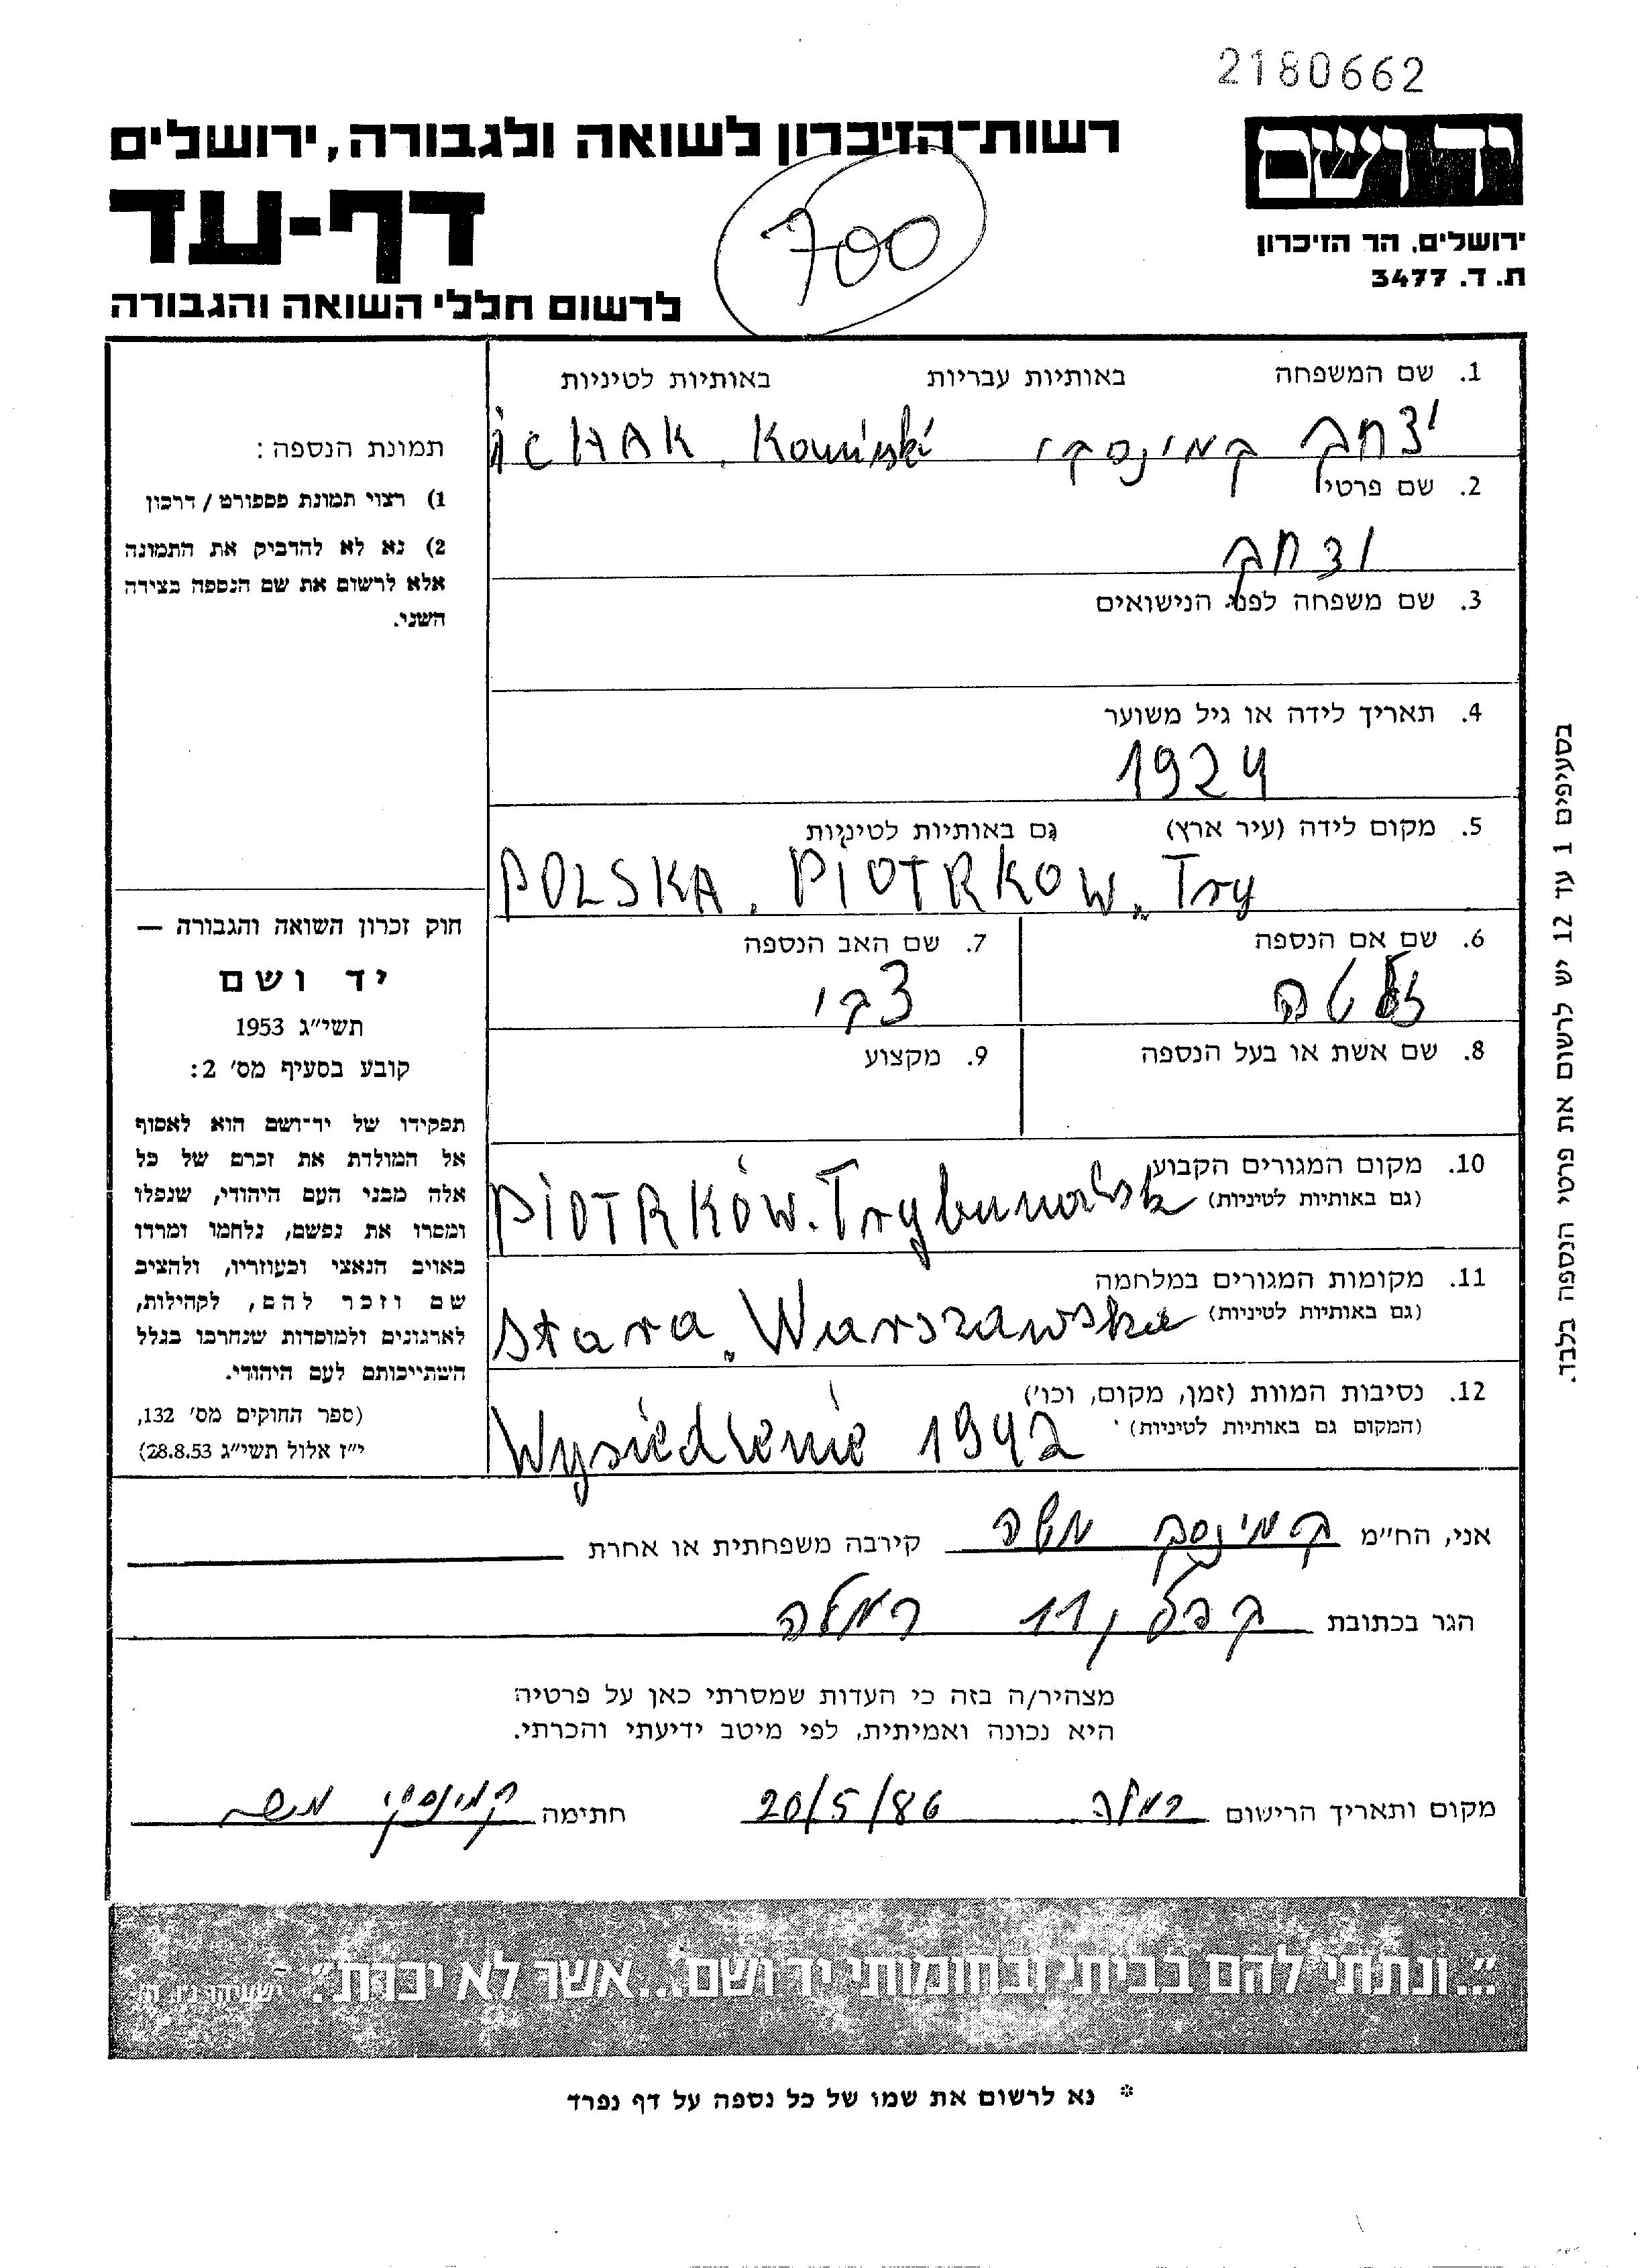 2180662
יד ושם
ירושלים, הר הזיכרון
ת. ד. 3477
רשות־הזיכרון לשואה ולגבורה, ירושלים
דף-עד
לרשום חללי השואה והגבורה
700
1. שם המשפחה באותיות עבריות באותיות לטיניות
יצחק קמינסקי ICHAK. Kamiński
2. שם פרטי
יצחק
3. שם משפחה לפני הנישואים
4. תאריך לידה או גיל משוער
1924
5. מקום לידה (עיר ארץ) גם באותיות לטיניות
POLSKA. PIOTRKOW. Try
6. שם אם הנספה
זלטה
7. שם האב הנספה
צבי
8. שם אשת או בעל הנספה
9. מקצוע
10. מקום המגורים הקבוע
(גם באותיות לטיניות)
PIOTRKÓW. Trybunalsk
11. מקומות המגורים במלחמה
(גם באותיות לטיניות)
Stara. Warszawska
12. נסיבות המוות (זמן, מקום, וכו')
(המקום גם באותיות לטיניות)
Wysiedlenie 1942
תמונת הנספה:
1) רצוי תמונת פספורט / דרכון
2) נא לא להדביק את התמונה
אלא לרשום את שם הנספה בצידה
השני.
חוק זכרון השואה והגבורה —
יד ושם
תשי״ג 1953
קובע בסעיף מס' 2:
תפקידו של יד־ושם הוא לאסוף
אל המולדת את זכרם של כל
אלה מבני העם היהודי, שנפלו
ומסרו את נפשם, נלחמו ומרדו
באויב הנאצי ובעוזריו, ולהציב
שם וזכר להם, לקהילות,
לארגונים ולמוסדות שנחרבו בגלל
השתייכותם לעם היהודי.
(ספר החוקים מס' 132,
י״ז אלול תשי״ג 28.8.53)
בסעיפים 1 עד 12 יש לרשום את פרטי הנספה בלבד.
אני, הח״מ קמינסקי משה קירבה משפחתית או אחרת
הגר בכתובת 11 רמלה
מצהיר/ה בזה כי העדות שמסרתי כאן על פרטיה
היא נכונה ואמיתית, לפי מיטב ידיעתי והכרתי.
מקום ותאריך הרישום רמלה 20/5/86 חתימה קמינסקי משה
״...ונתתי להם בביתי ובחומותי יד ושם...אשר לא יכרת״. ישעיהו נ״ו, ה'
* נא לרשום את שמו של כל נספה על דף נפרד